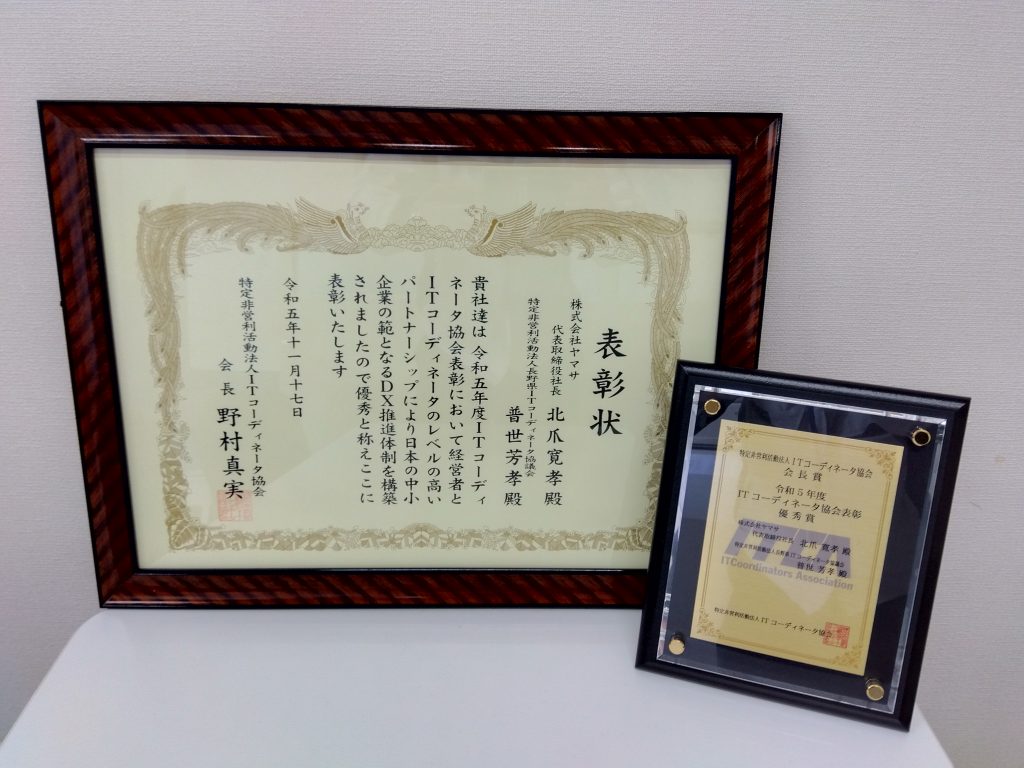 表彰状
株式会社ヤマサ
代表取締役社長 北爪寛孝殿
特定非営利活動法人長野県ITコーディネータ協議会
普世芳孝殿
貴社達は 令和五年度ITコーディ
ネータ協会表彰において経営者と
ITコーディネータのレベルの高い
パートナーシップにより日本の中小
企業の範となるDX推進体制を構築
されましたので優秀と称えここに
表彰いたします
令和五年十一月十七日
特定非営利活動法人ITコーディネータ協会
会長 野村真実
特定非営利活動法人ITコーディネータ協会
会長賞
令和5年度
ITコーディネータ協会表彰
優秀賞
株式会社ヤマサ
代表取締役社長 北爪 寛孝 殿
特定非営利活動法人長野県ITコーディネータ協議会
普世 芳孝 殿
ITCoordinators Association
特定非営利活動法人ITコーディネータ協会